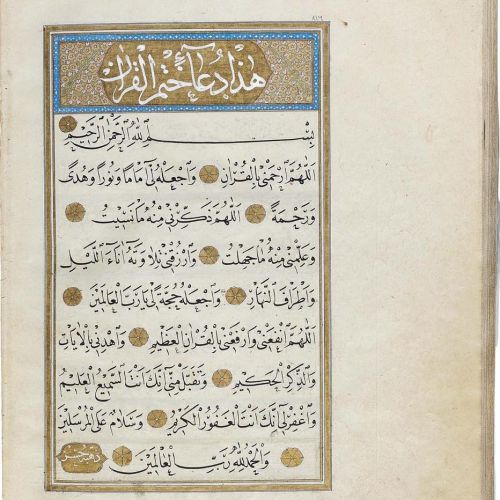 ٨١٦
هذا دعاء ختم القرآن
بسم الله الرحمن الرحيم
اللهم ارحمني بالقرآن واجعله لي اماما ونورا وهدى
ورحمة اللهم ذكرني منه ما نسيت
وعلمني منه ما جهلت وارزقني تلاوته آناء الليل
واطراف النهار واجعله حجة لي يا رب العالمين
اللهم انفعنا وارفعنا بالقرآن العظيم واهدنا بالآيات
والذكر الحكيم وتقبل منا انك انت السميع العليم
واغفر لي انك انت الغفور الكريم وسلام على المرسلين
والحمد لله رب العالمين